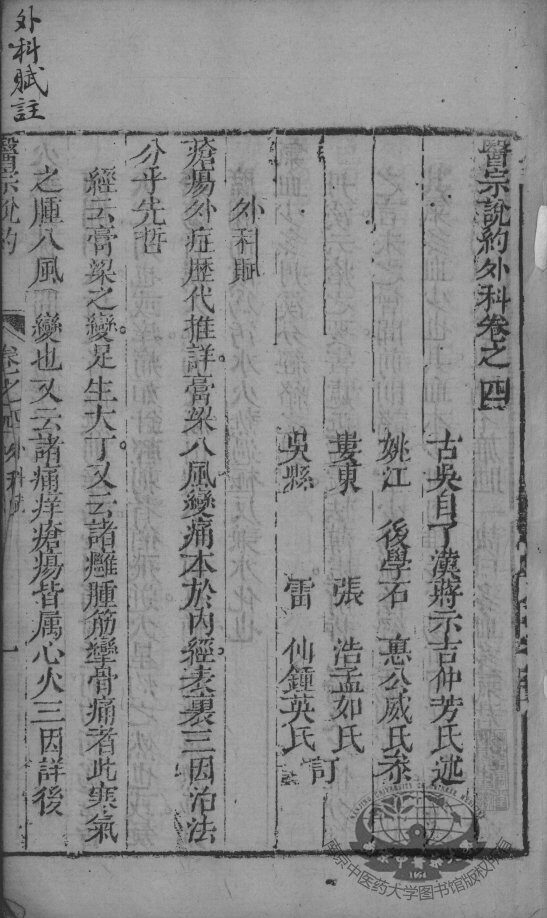 外科賦註
醫宗說約外科卷之四
古吳自了漢蔣示吉仲芳氏述
姚江 後學石 惠公威氏叅
婁東 張 浩孟如氏
吳縣 雷 仙鍾英氏 訂
外科賦
瘡瘍外症歷代推詳膏粱八風變痛本於內經表裏三因治法
分乎先哲
經云膏粱之變足生大丁又云諸癰腫筋攣骨痛者此寒氣
之腫八風 變也又云諸痛痒瘡瘍皆属心火三因詳後
醫宗說約
卷之四 外科賦
一
南京中医药大学图书馆版权所有
1954